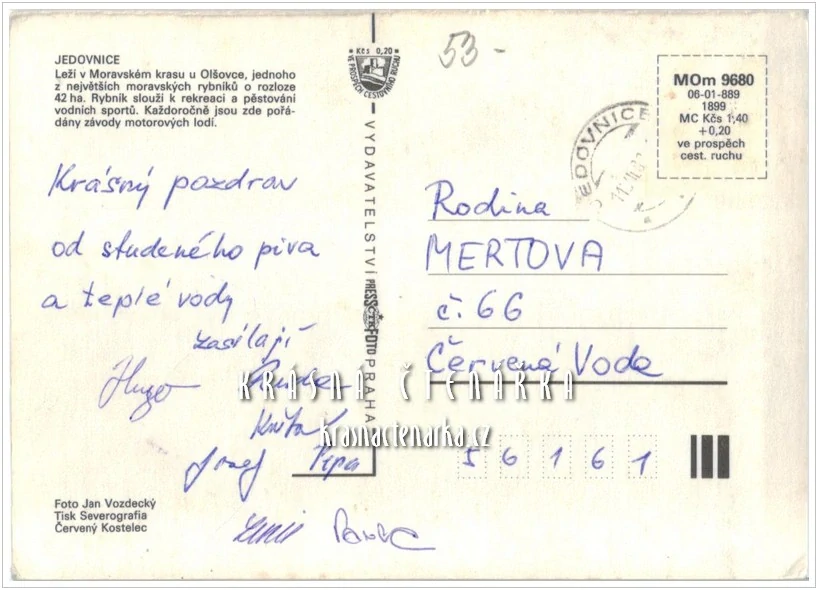 JEDOVNICE
Leží v Moravském krasu u Olšovce, jednoho
z největších moravských rybníků o rozloze
42 ha. Rybník slouží k rekreaci a pěstování
vodních sportů. Každoročně jsou zde pořá-
dány závody motorových lodí.
Krásný pozdrav
od studeného piva
a teplé vody
zasílají
Hugo
Josef Pepa
Foto Jan Vozdecký
Tisk Severografia
Červený Kostelec
Kčs 0,20
VE PROSPĚCH CESTOVNÍHO RUCHU
VYDAVATELSTVÍ PRESSFOTO PRAHA
53-
JEDOVNICE
MOm 9680
06-01-889
1899
MC Kčs 1,40
+0,20
ve prospěch
cest. ruchu
Rodina
MERTOVA
č. 66
Červená Voda
56161
KRÁSNÁ ČTENÁŘKA
krasnactenarka.cz